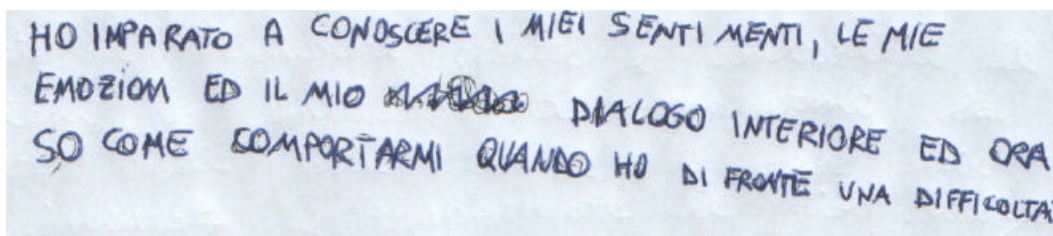 HO IMPARATO A CONOSCERE I MIEI SENTIMENTI, LE MIE
EMOZIONI ED IL MIO DIALOGO INTERIORE ED ORA
SO COME COMPORTARMI QUANDO HO DI FRONTE UNA DIFFICOLTA'